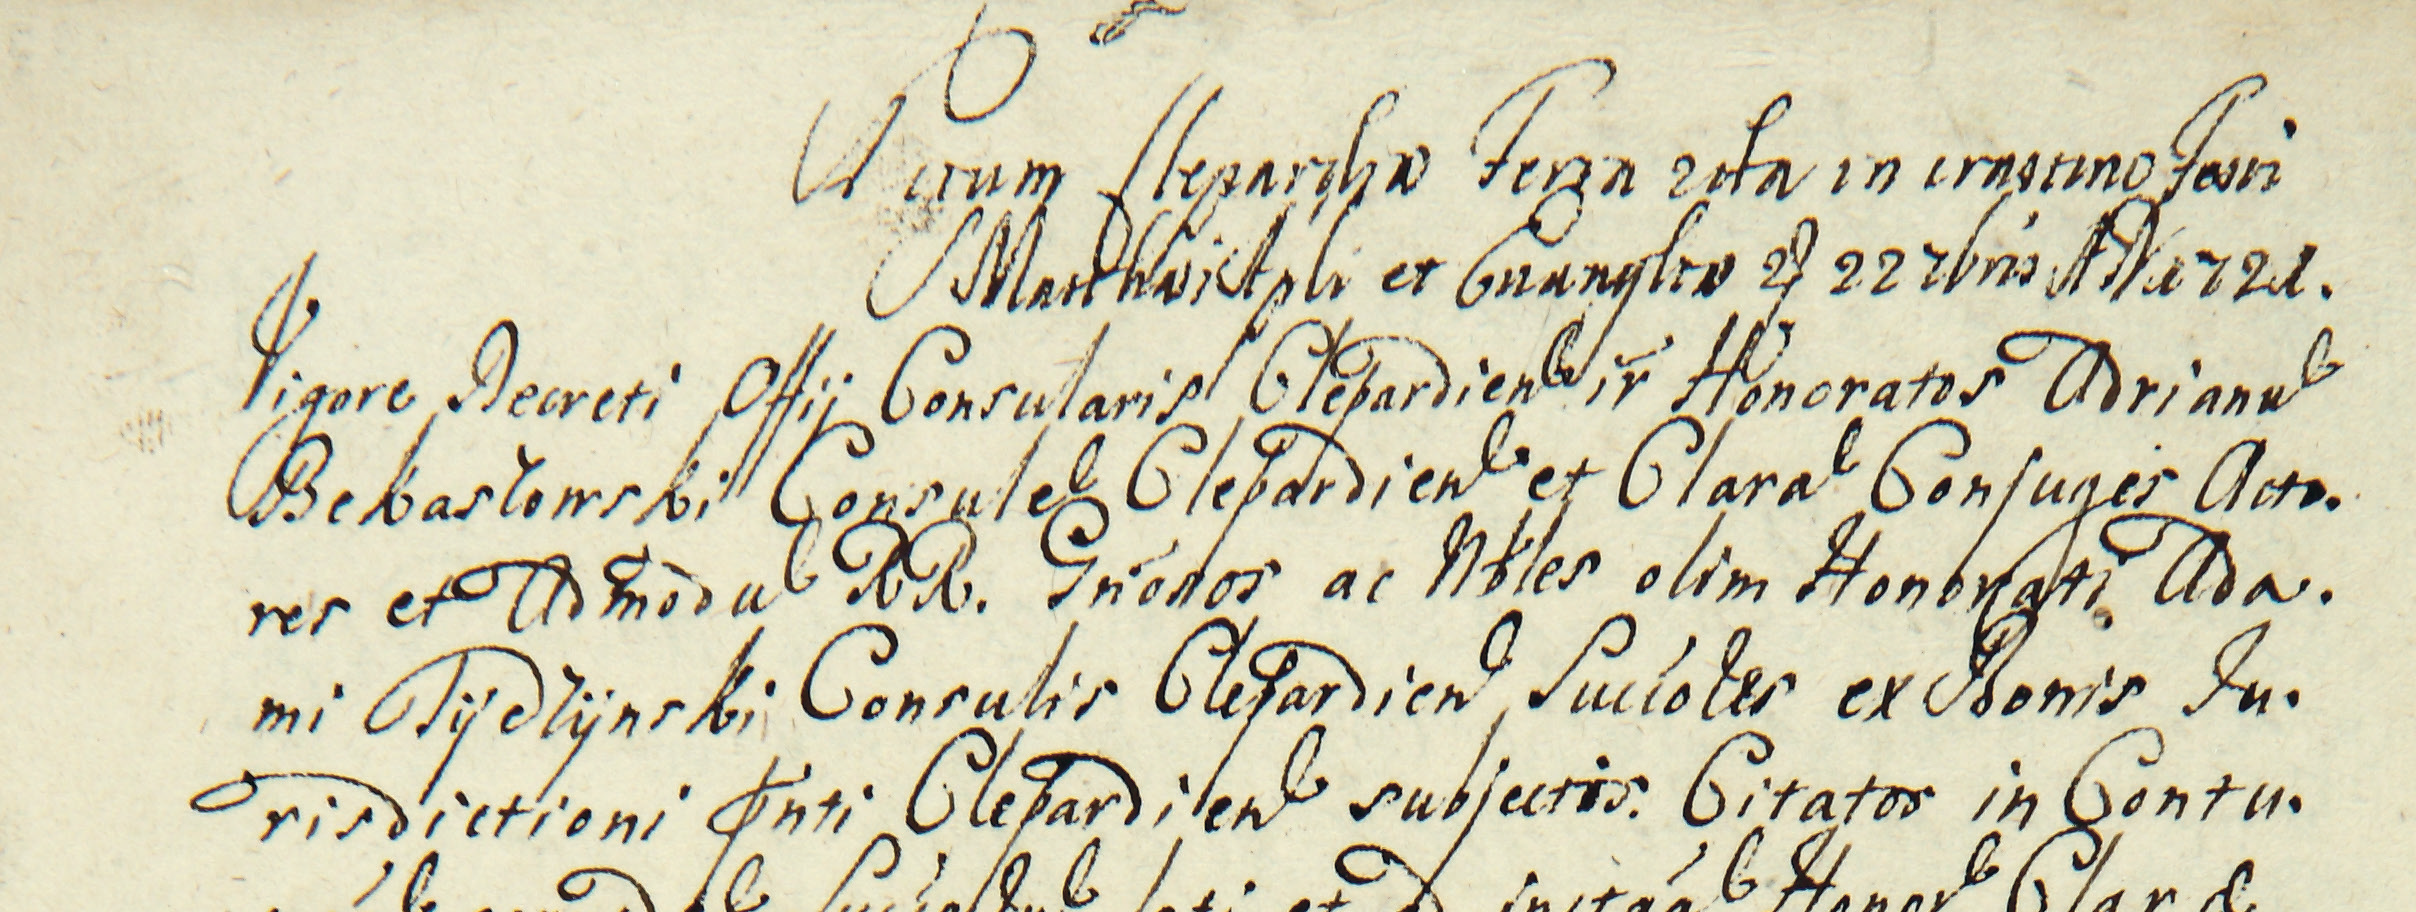 Actum Clepardiæ Feria 2da in crastino Festi
Matthæi Apli et Euanglæ 22 7bris AD 1721.
Vigore Decreti Offij Consularis Clepardien ir Honoratos Adrianu
Bekastowski Consule Clepardien et Clara Conjuges Acto.
res et Admodu RR. Gnosos ac Nobles olim Honorati Ada.
mi Tydtynski Consulis Clepardien Succoles ex Bonis Ju.
risdictioni Pnti Clepardien subjectis. Citatos in Contu.